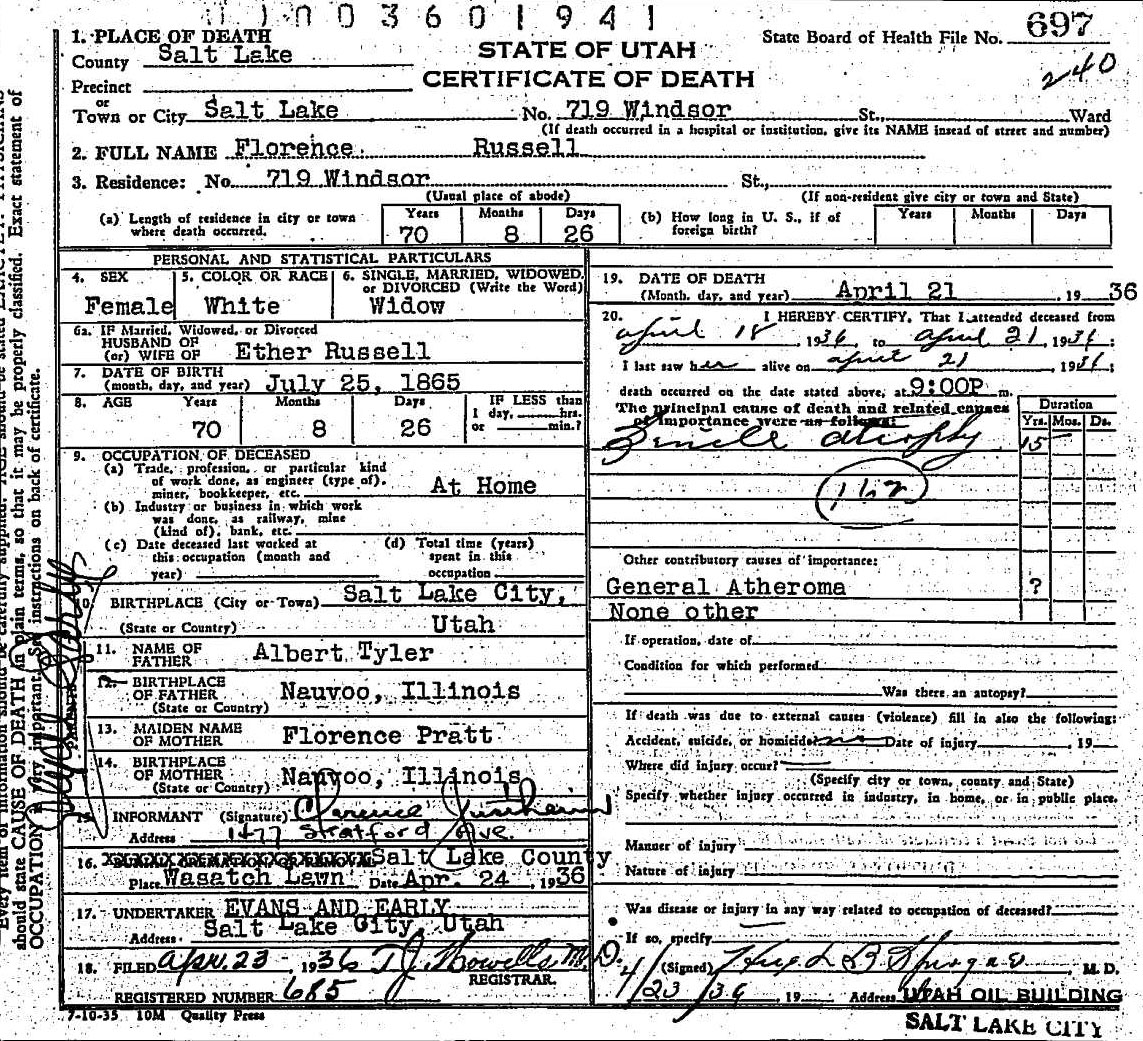 1003601941
1. PLACE OF DEATH
County Salt Lake
STATE OF UTAH
CERTIFICATE OF DEATH
State Board of Health File No. 697
240
Precinct
or
Town or City Salt Lake No. 719 Windsor St., Ward
(If death occurred in a hospital or institution, give its NAME insead of street and number)
2. FULL NAME Florence Russell
3. Residence: No. 719 Windsor St.,
(Usual place of abode) (If non-resident give city or town and State)
(a) Length of residence in city or town where death occurred. Years 70 Months 8 Days 26
(b) How long in U. S., if of foreign birth? Years Months Days
PERSONAL AND STATISTICAL PARTICULARS
4. SEX Female
5. COLOR OR RACE White
6. SINGLE, MARRIED, WIDOWED, or DIVORCED (Write the Word) Widow
6a. IF Married, Widowed, or Divorced
HUSBAND OF
(or) WIFE OF Ether Russell
7. DATE OF BIRTH
(month, day, and year) July 25, 1865
8. AGE Years 70 Months 8 Days 26
IF LESS than
1 day, hrs.
or min.?
9. OCCUPATION OF DECEASED
(a) Trade, profession, or particular kind
of work done, as engineer (type of),
miner, bookkeeper, etc. At Home
(b) Industry or business in which work
was done, as railway, mine
(kind of), bank, etc.
(c) Date deceased last worked at
this occupation (month and
year)
(d) Total time (years)
spent in this
occupation
10. BIRTHPLACE (City or Town) Salt Lake City,
(State or Country) Utah
11. NAME OF
FATHER Albert Tyler
12. BIRTHPLACE
OF FATHER Nauvoo, Illinois
(State or Country)
13. MAIDEN NAME
OF MOTHER Florence Pratt
14. BIRTHPLACE
OF MOTHER Nauvoo, Illinois
(State or Country)
15. INFORMANT (Signature) Clarence
Address 1477 Stratford Ave.
16. Salt Lake County
Place Wasatch Lawn Date Apr. 24, 1936
17. UNDERTAKER EVANS AND EARLY
Address Salt Lake City, Utah
18. FILED Apr. 23 1936 T.J. Howells M.D.
REGISTRAR.
REGISTERED NUMBER 685
7-10-35 10M Quality Press
19. DATE OF DEATH
(Month, day, and year) April 21, 1936
20. I HEREBY CERTIFY, That I attended deceased from
April 18, 1936, to April 21, 1936:
I last saw her alive on April 21, 1936:
death occurred on the date stated above, at 9:00P m.
The principal cause of death and related causes
of importance were as follows:
Duration
Yrs. Mos. Ds.
Senile atrophy 15
162
Other contributory causes of importance:
General Atheroma ?
None other
If operation, date of
Condition for which performed
Was there an autopsy?
If death was due to external causes (violence) fill in also the following:
Accident, suicide, or homicide no Date of injury 19
Where did injury occur?
(Specify city or town, county and State)
Specify whether injury occurred in industry, in home, or in public place.
Manner of injury
Nature of injury
Was disease or injury in any way related to occupation of deceased?
If so, specify
(Signed) Hugh B Sprague M. D.
4/23/36, 19 Address UTAH OIL BUILDING
SALT LAKE CITY
Every item of information should be carefully supplied. AGE should be stated EXACTLY. PHYSICIANS
should state CAUSE OF DEATH in plain terms, so that it may be properly classified. Exact statement of
OCCUPATION is very important. See instructions on back of certificate.